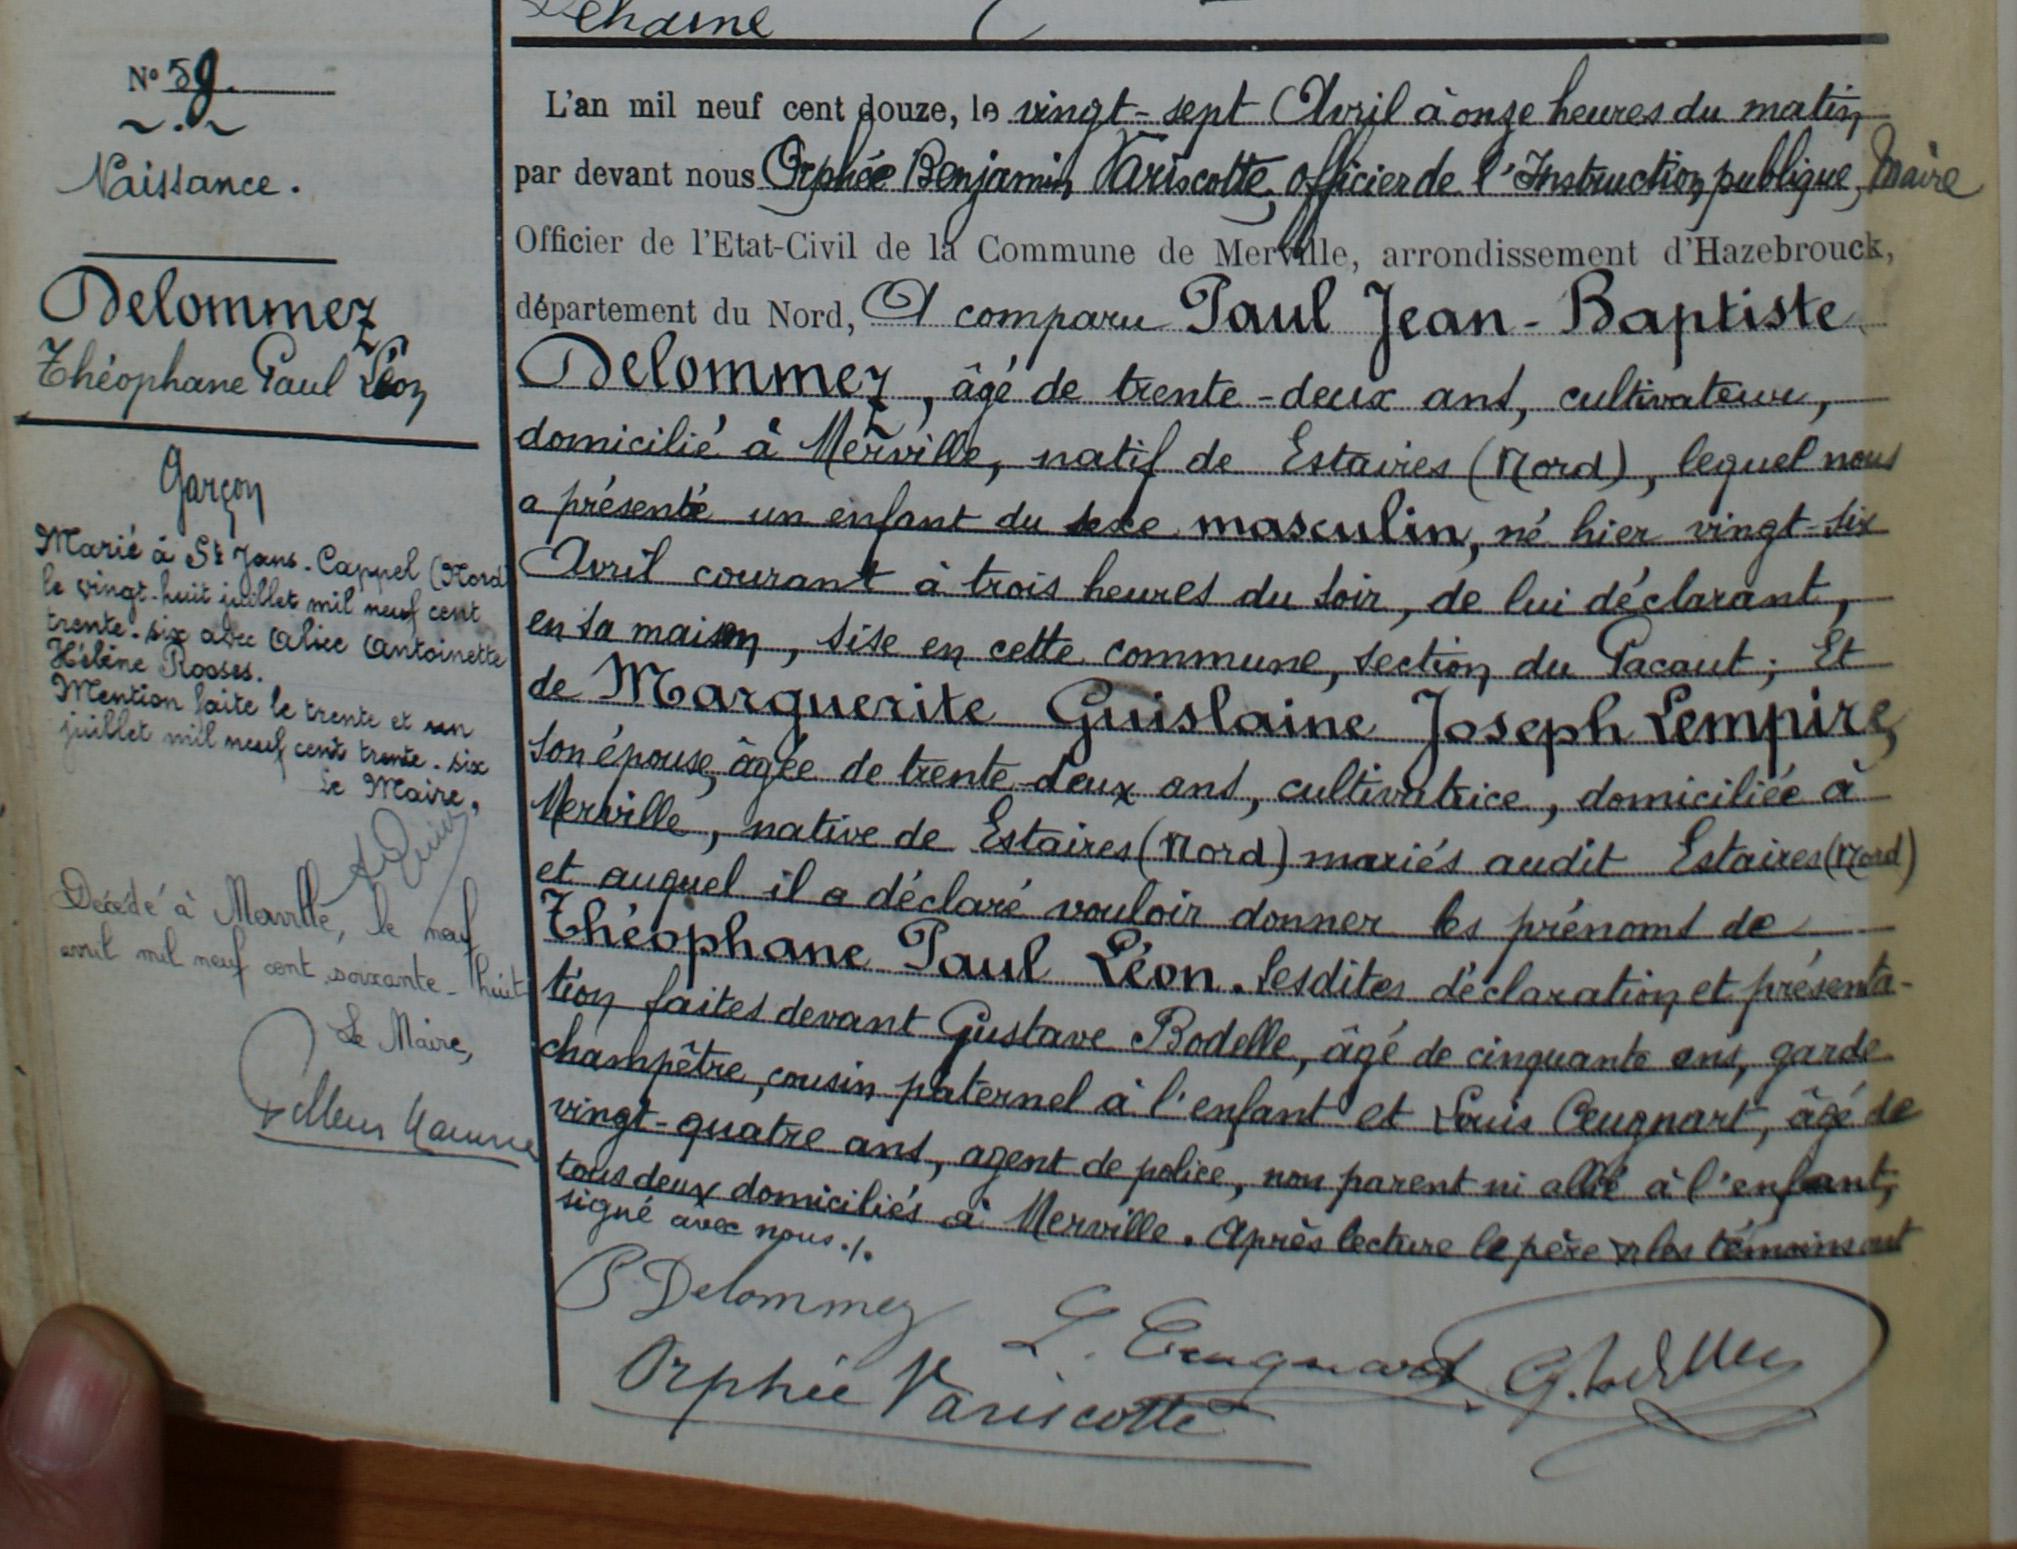 Dehaine
N° 59.
Naissance.
Delommez
Théophane Paul Léon
Garçon
Marié à St Jans-Cappel (Nord
le vingt-huit juillet mil neuf cent
trente-six avec Alice Antoinette
Hélène Rooses.
Mention faite le trente et un
juillet mil neuf cent trente-six
Le Maire,
Décédé à Merville, le neuf
avril mil neuf cent soixante-huit
Le Maire,
L'an mil neuf cent douze, le vingt-sept Avril à onze heures du matin
par devant nous Orphée Benjamin Variscotte, officier de l'Instruction publique, Maire
Officier de l'Etat-Civil de la Commune de Merville, arrondissement d'Hazebrouck,
département du Nord, A comparu Paul Jean-Baptiste
Delommez, âgé de trente-deux ans, cultivateur,
domicilié à Merville, natif de Estaires (Nord), lequel nous
a présenté un enfant du sexe masculin, né hier vingt-six
Avril courant à trois heures du soir, de lui déclarant,
en sa maison, sise en cette commune, section du Pacaut; Et
de Marguerite Guislaine Joseph Lempire,
son épouse, âgée de trente-deux ans, cultivatrice, domiciliée à
Merville, native de Estaires (Nord) mariés audit Estaires (Nord)
et auquel il a déclaré vouloir donner les prénoms de
Théophane Paul Léon. Lesdites déclaration et présenta-
tion faites devant Gustave Bodelle, âgé de cinquante ans, garde
champêtre, cousin paternel à l'enfant et Louis Ceugnart, âgé de
vingt-quatre ans, agent de police, non parent ni allié à l'enfant,
tous deux domiciliés à Merville. Après lecture le père et les témoins ont
signé avec nous ./.
P Delommez
L. Ceugnart
G. Bodelle
Orphée Variscotte